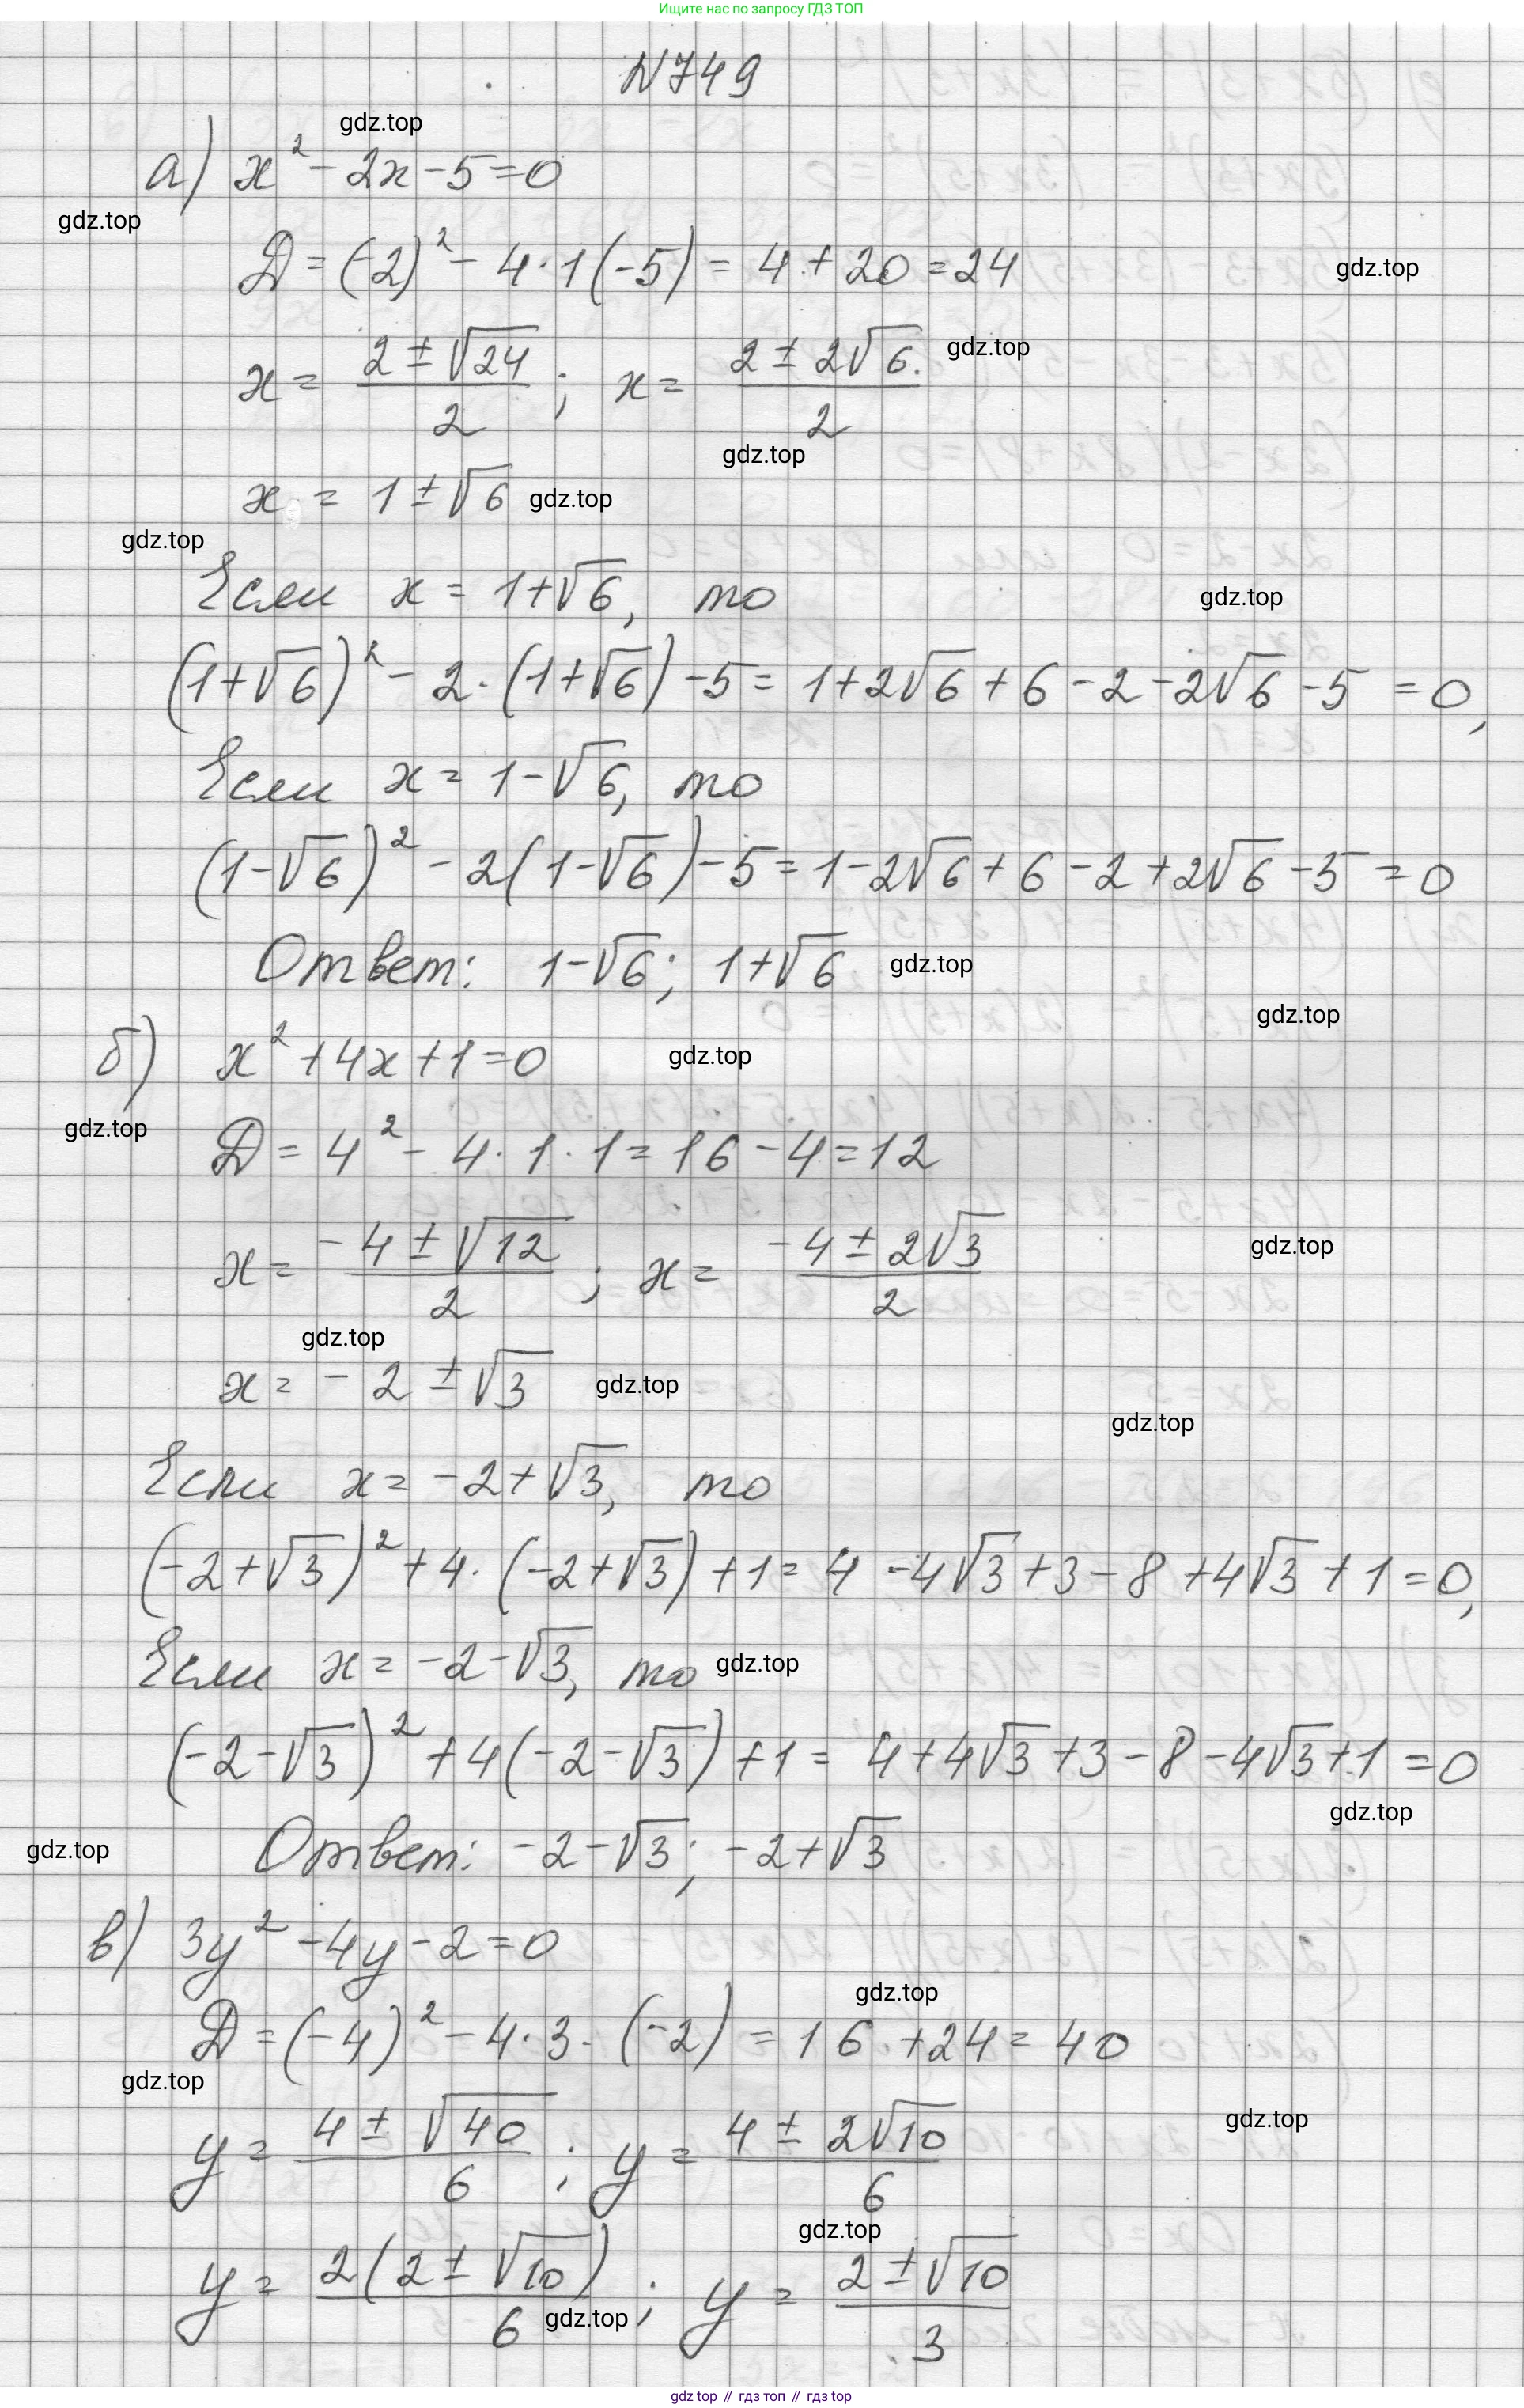 Ищите нас по запросу ГДЗ ТОП
N749
gdz.top
а) x² - 2x - 5 = 0
gdz.top
D = (-2)² - 4·1(-5) = 4 + 20 = 24
gdz.top
x = (2 ± √24)/2 ; x = (2 ± 2√6)/2
gdz.top
gdz.top
x = 1 ± √6
gdz.top
gdz.top
Если x = 1+√6, то
gdz.top
(1+√6)² - 2·(1+√6) - 5 = 1 + 2√6 + 6 - 2 - 2√6 - 5 = 0,
Если x = 1-√6, то
(1-√6)² - 2(1-√6) - 5 = 1 - 2√6 + 6 - 2 + 2√6 - 5 = 0
Ответ: 1-√6; 1+√6
gdz.top
gdz.top
б) x² + 4x + 1 = 0
gdz.top
gdz.top
D = 4² - 4·1·1 = 16 - 4 = 12
gdz.top
x = (-4 ± √12)/2 ; x = (-4 ± 2√3)/2
gdz.top
x = -2 ± √3
gdz.top
gdz.top
Если x = -2+√3, то
(-2+√3)² + 4·(-2+√3) + 1 = 4 - 4√3 + 3 - 8 + 4√3 + 1 = 0,
Если x = -2-√3, то
gdz.top
(-2-√3)² + 4(-2-√3) + 1 = 4 + 4√3 + 3 - 8 - 4√3 + 1 = 0
gdz.top
gdz.top
Ответ: -2-√3; -2+√3
в) 3y² - 4y - 2 = 0
gdz.top
D = (-4)² - 4·3·(-2) = 16 + 24 = 40
gdz.top
gdz.top
y = (4 ± √40)/6 ; y = (4 ± 2√10)/6
gdz.top
y = 2(2 ± √10)/6 ; y = (2 ± √10)/3
gdz.top
gdz top // гдз топ // гдз top